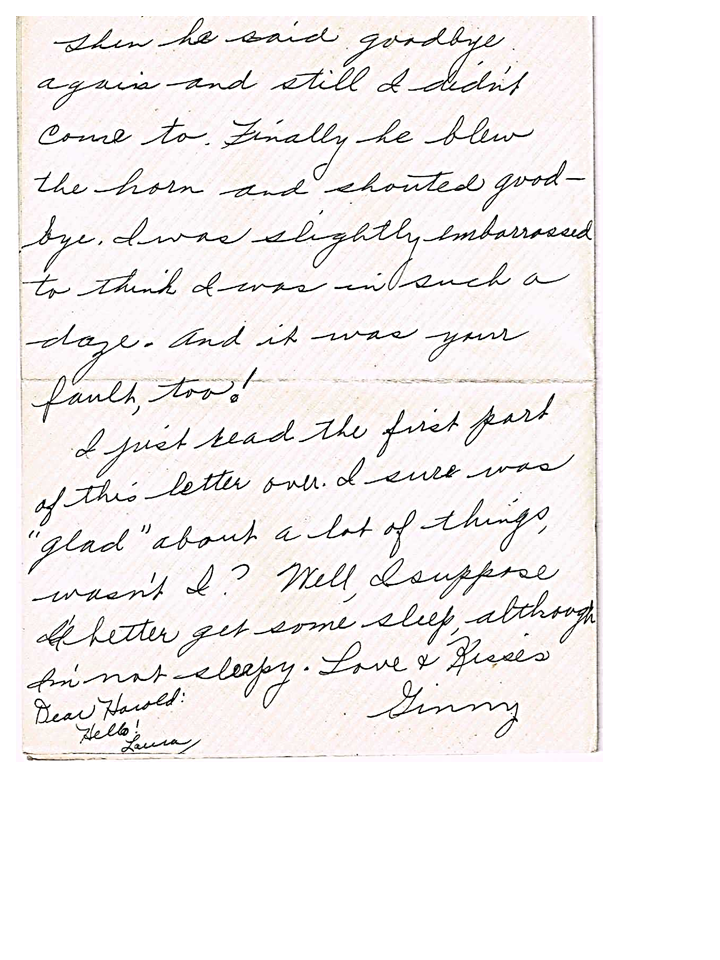 Then he said goodbye
again and still I didn't
come to. Finally he blew
the horn and shouted good-
bye. I was slightly embarrassed
to think I was in such a
daze. And it was your
fault, too!
I just read the first part
of this letter over. I sure was
"glad" about a lot of things,
wasn't I? Well, I suppose
I'd better get some sleep, although
I'm not sleepy. Love & Kisses
Ginny
Dear Harold:
Hello!
Laura